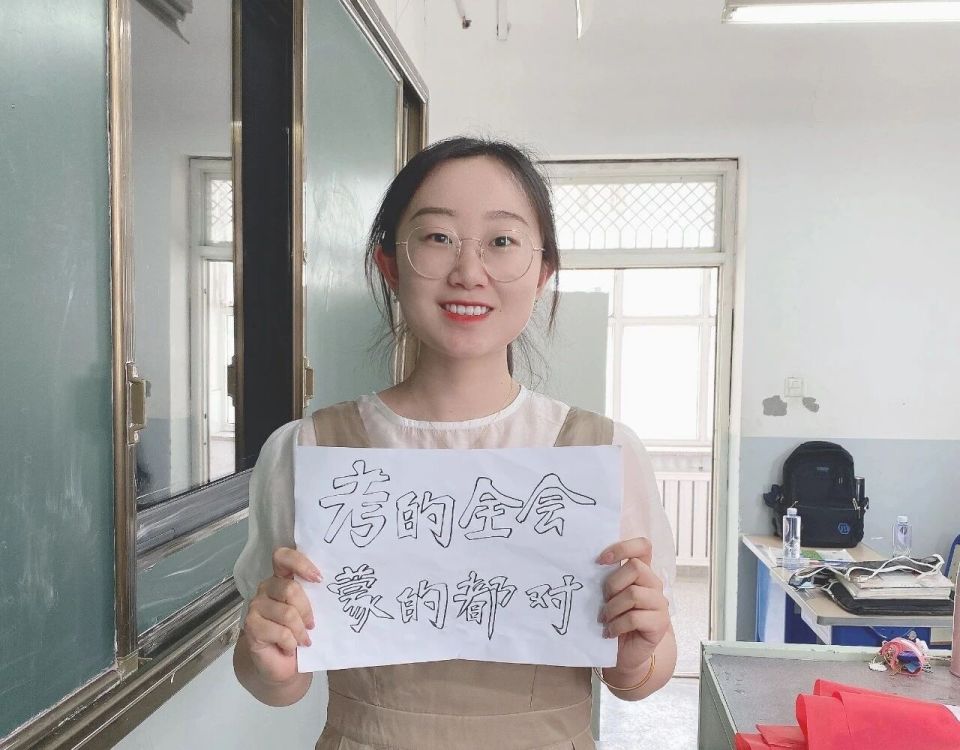 考的全会
蒙的都对